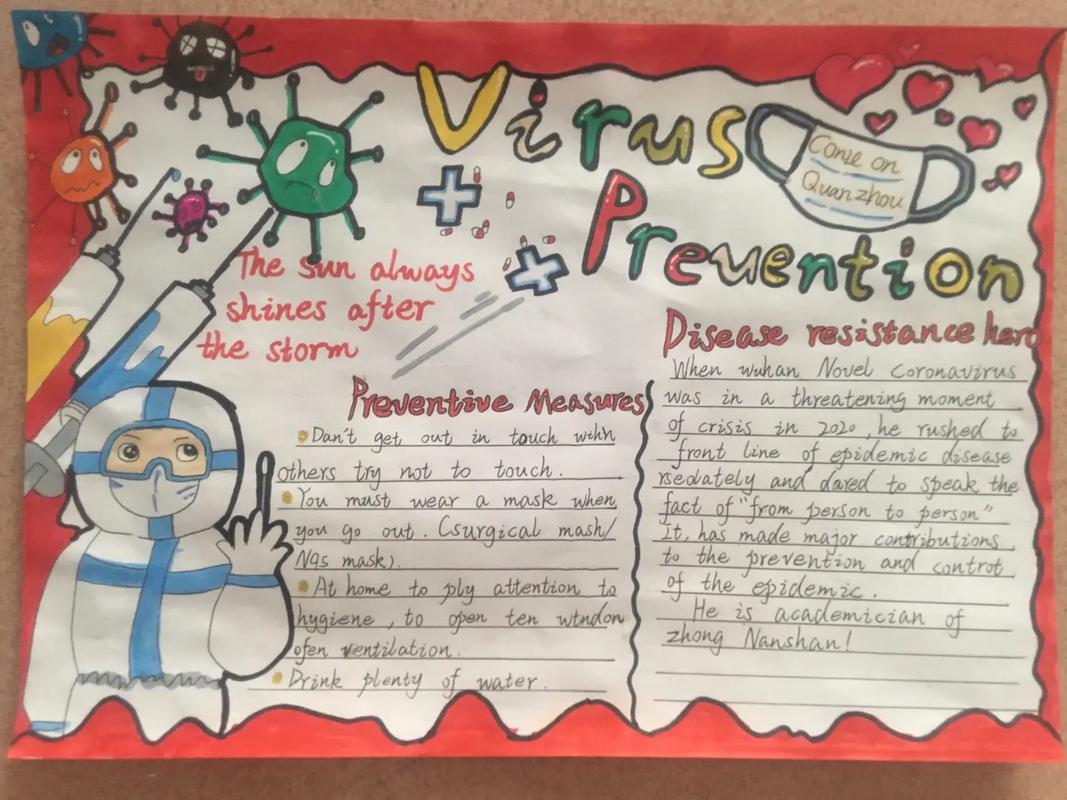 Virus
Prevention
Come on
Quanzhou
The sun always
shines after
the storm
Preventive Measures
Dan't get out in touch wihh
others try not to touch.
You must wear a mask when
you go out. (surgical mash/
N95 mask).
At home to ply attention to
hygiene, to open ten wtndon
ofen ventilation.
Drink plenty of water.
Disease resistance hero
When wuhan Novel Coronavirus
was in a threatening moment
of crisis in 2020, he rushed to
front line of epidemic disease
rseolately and dared to speak the
fact of "from person to person"
It has made major contributions
to the prevention and controt
of the epidemic.
He is academician of
zhong Nanshan!